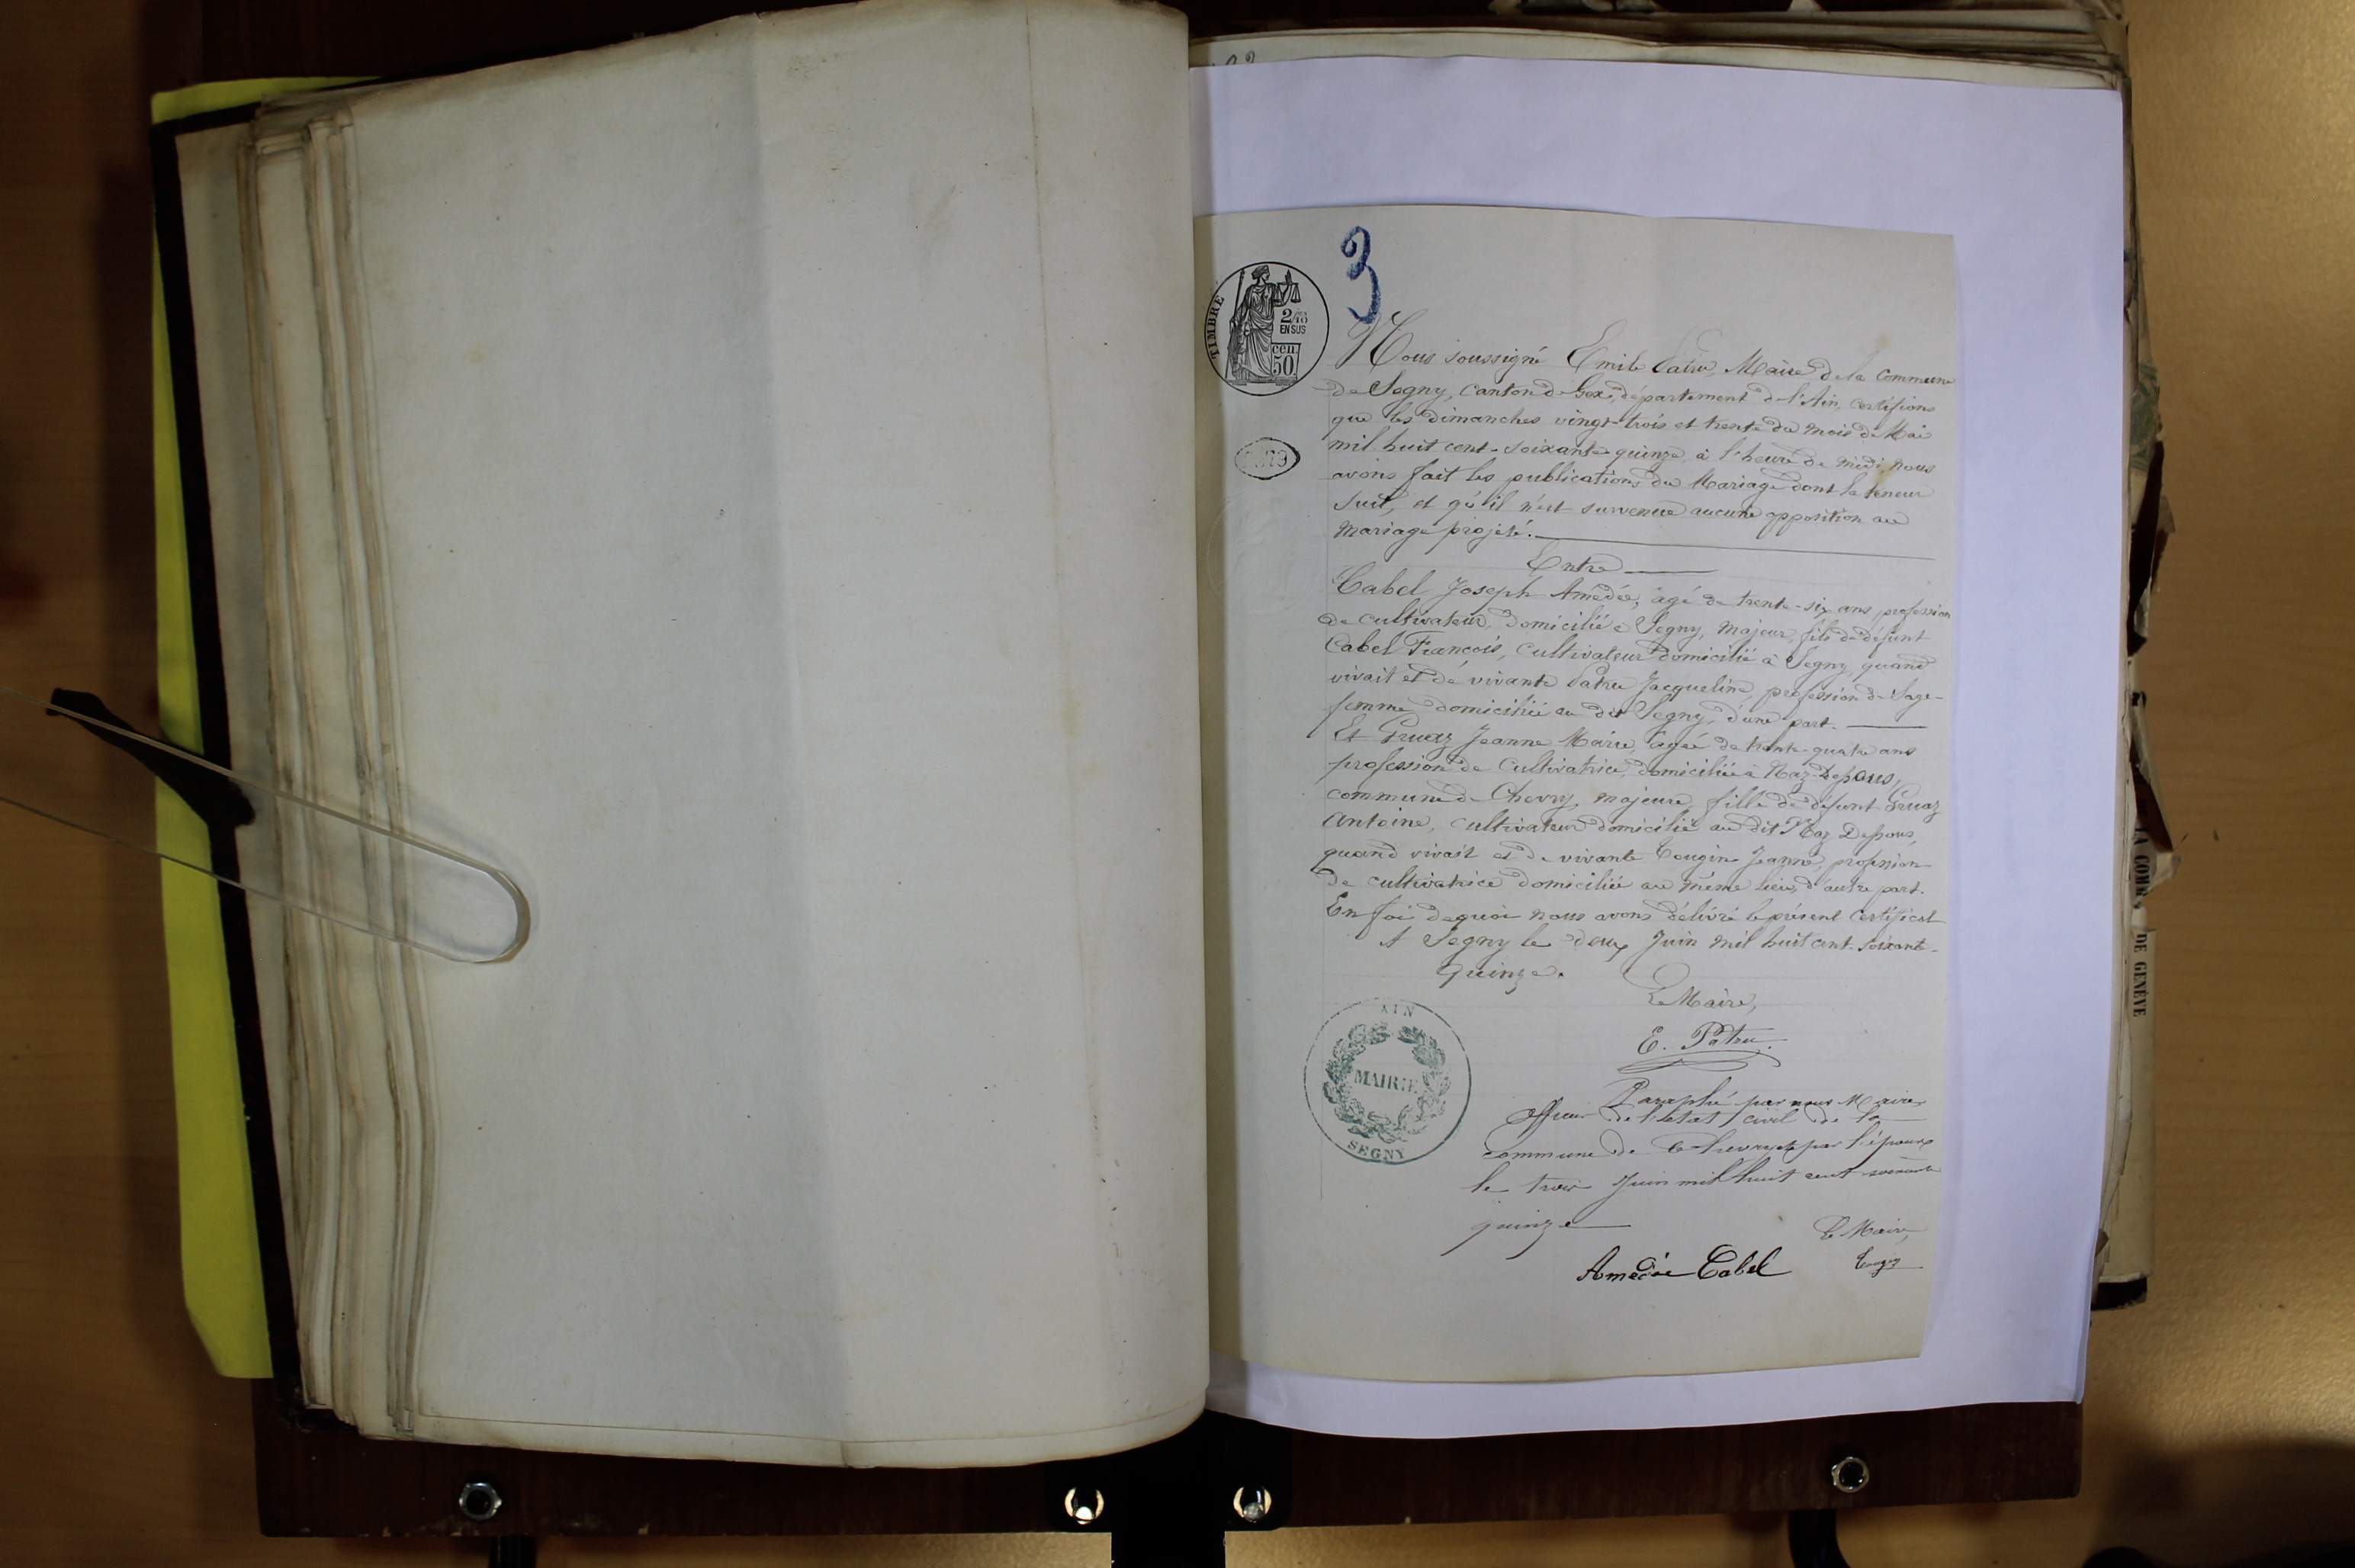 3
TIMBRE
2/10
EN SUS
cen.
50
Nous soussigné Emile Patru, Maire de la Commune
de Segny, Canton de Gex, département de l'Ain, certifions
que les dimanches vingt-trois et trente du mois de Mai
mil huit cent-soixante-quinze, à l'heure de midi, nous
avons fait les publications du Mariage dont la teneur
suit, et qu'il n'est survenue aucune opposition au
Mariage projeté.
Entre
Cabel Joseph Amédée, âgé de trente-six ans, profession
de cultivateur, domicilié à Segny, majeur, fils de défunt
Cabel François, Cultivateur domicilié à Segny, quand
vivait et de vivante Patru Jacqueline, profession de Sage-
femme domiciliée au dit Segny, d'une part.
Et Gruaz Jeanne Marie, âgée de trente-quatre ans
profession de Cultivatrice, domiciliée à Naz-Dessous,
commune de Chevry, majeure, fille de défunt Gruaz
Antoine, cultivateur domicilié au dit Naz Dessous,
quand vivait et de vivante Tougin Jeanne, profession
de cultivatrice domiciliée au même lieu, d'autre part.
En foi de quoi nous avons délivré le présent Certificat
A Segny le deux Juin mil huit cent-soixante-
Quinze.
Le Maire,
E. Patru.
AIN
MAIRIE
SEGNY
Paraphé par nous Maire
officier de l'état civil de la
commune de Chevry et par l'époux
le trois Juin mil huit cent soixante
quinze
Le Maire,
Amédée Cabel
LA COMP.
DE GENÈVE